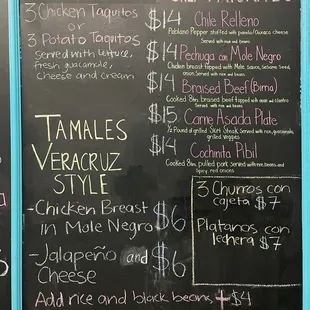 3 Chicken Taquitos
or
3 Potato Taquitos
served with lettuce,
fresh guacamole,
cheese and cream
TAMALES
VERACRUZ
STYLE
-Chicken Breast $6
in Mole Negro
-Jalapeño and $6
Cheese
Add rice and black beans + $4
$14 Chile Relleno
Poblano Pepper stuffed with panela/Oaxaca cheese
Served with rice and beans
$14 Pechuga con Mole Negro
Chicken breast topped with Mole sauce, sesame seed,
onion, Served with rice and beans
$14 Braised Beef (Birria)
Cooked 8hr, braised beef topped with onion and cilantro
Served with rice and beans
$15 Carne Asada Plate
½ Pound of grilled Skirt Steak Served with rice, guacamole,
grilled veggies
$14 Cochinita Pibil
Cooked 8hr, pulled pork Served with rice, beans and
spicy red onions
3 Churros con
cajeta $7
Platanos con
lechera $7